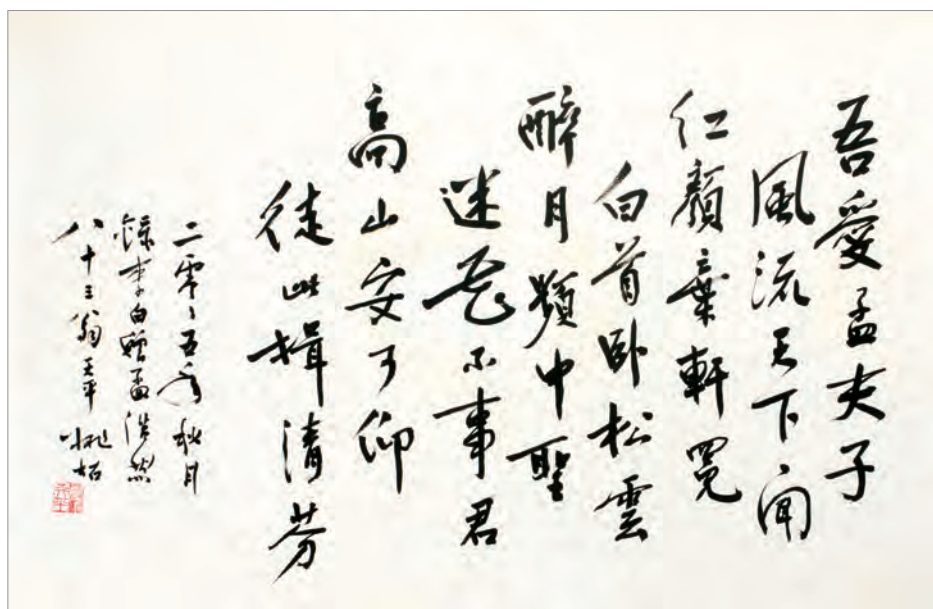 吾愛孟夫子
風流天下聞
紅顏棄軒冕
白首卧松雲
醉月頻中聖
迷花不事君
高山安可仰
徒此揖清芬
二零零五年秋月
錄李白贈孟浩然
八十三翁